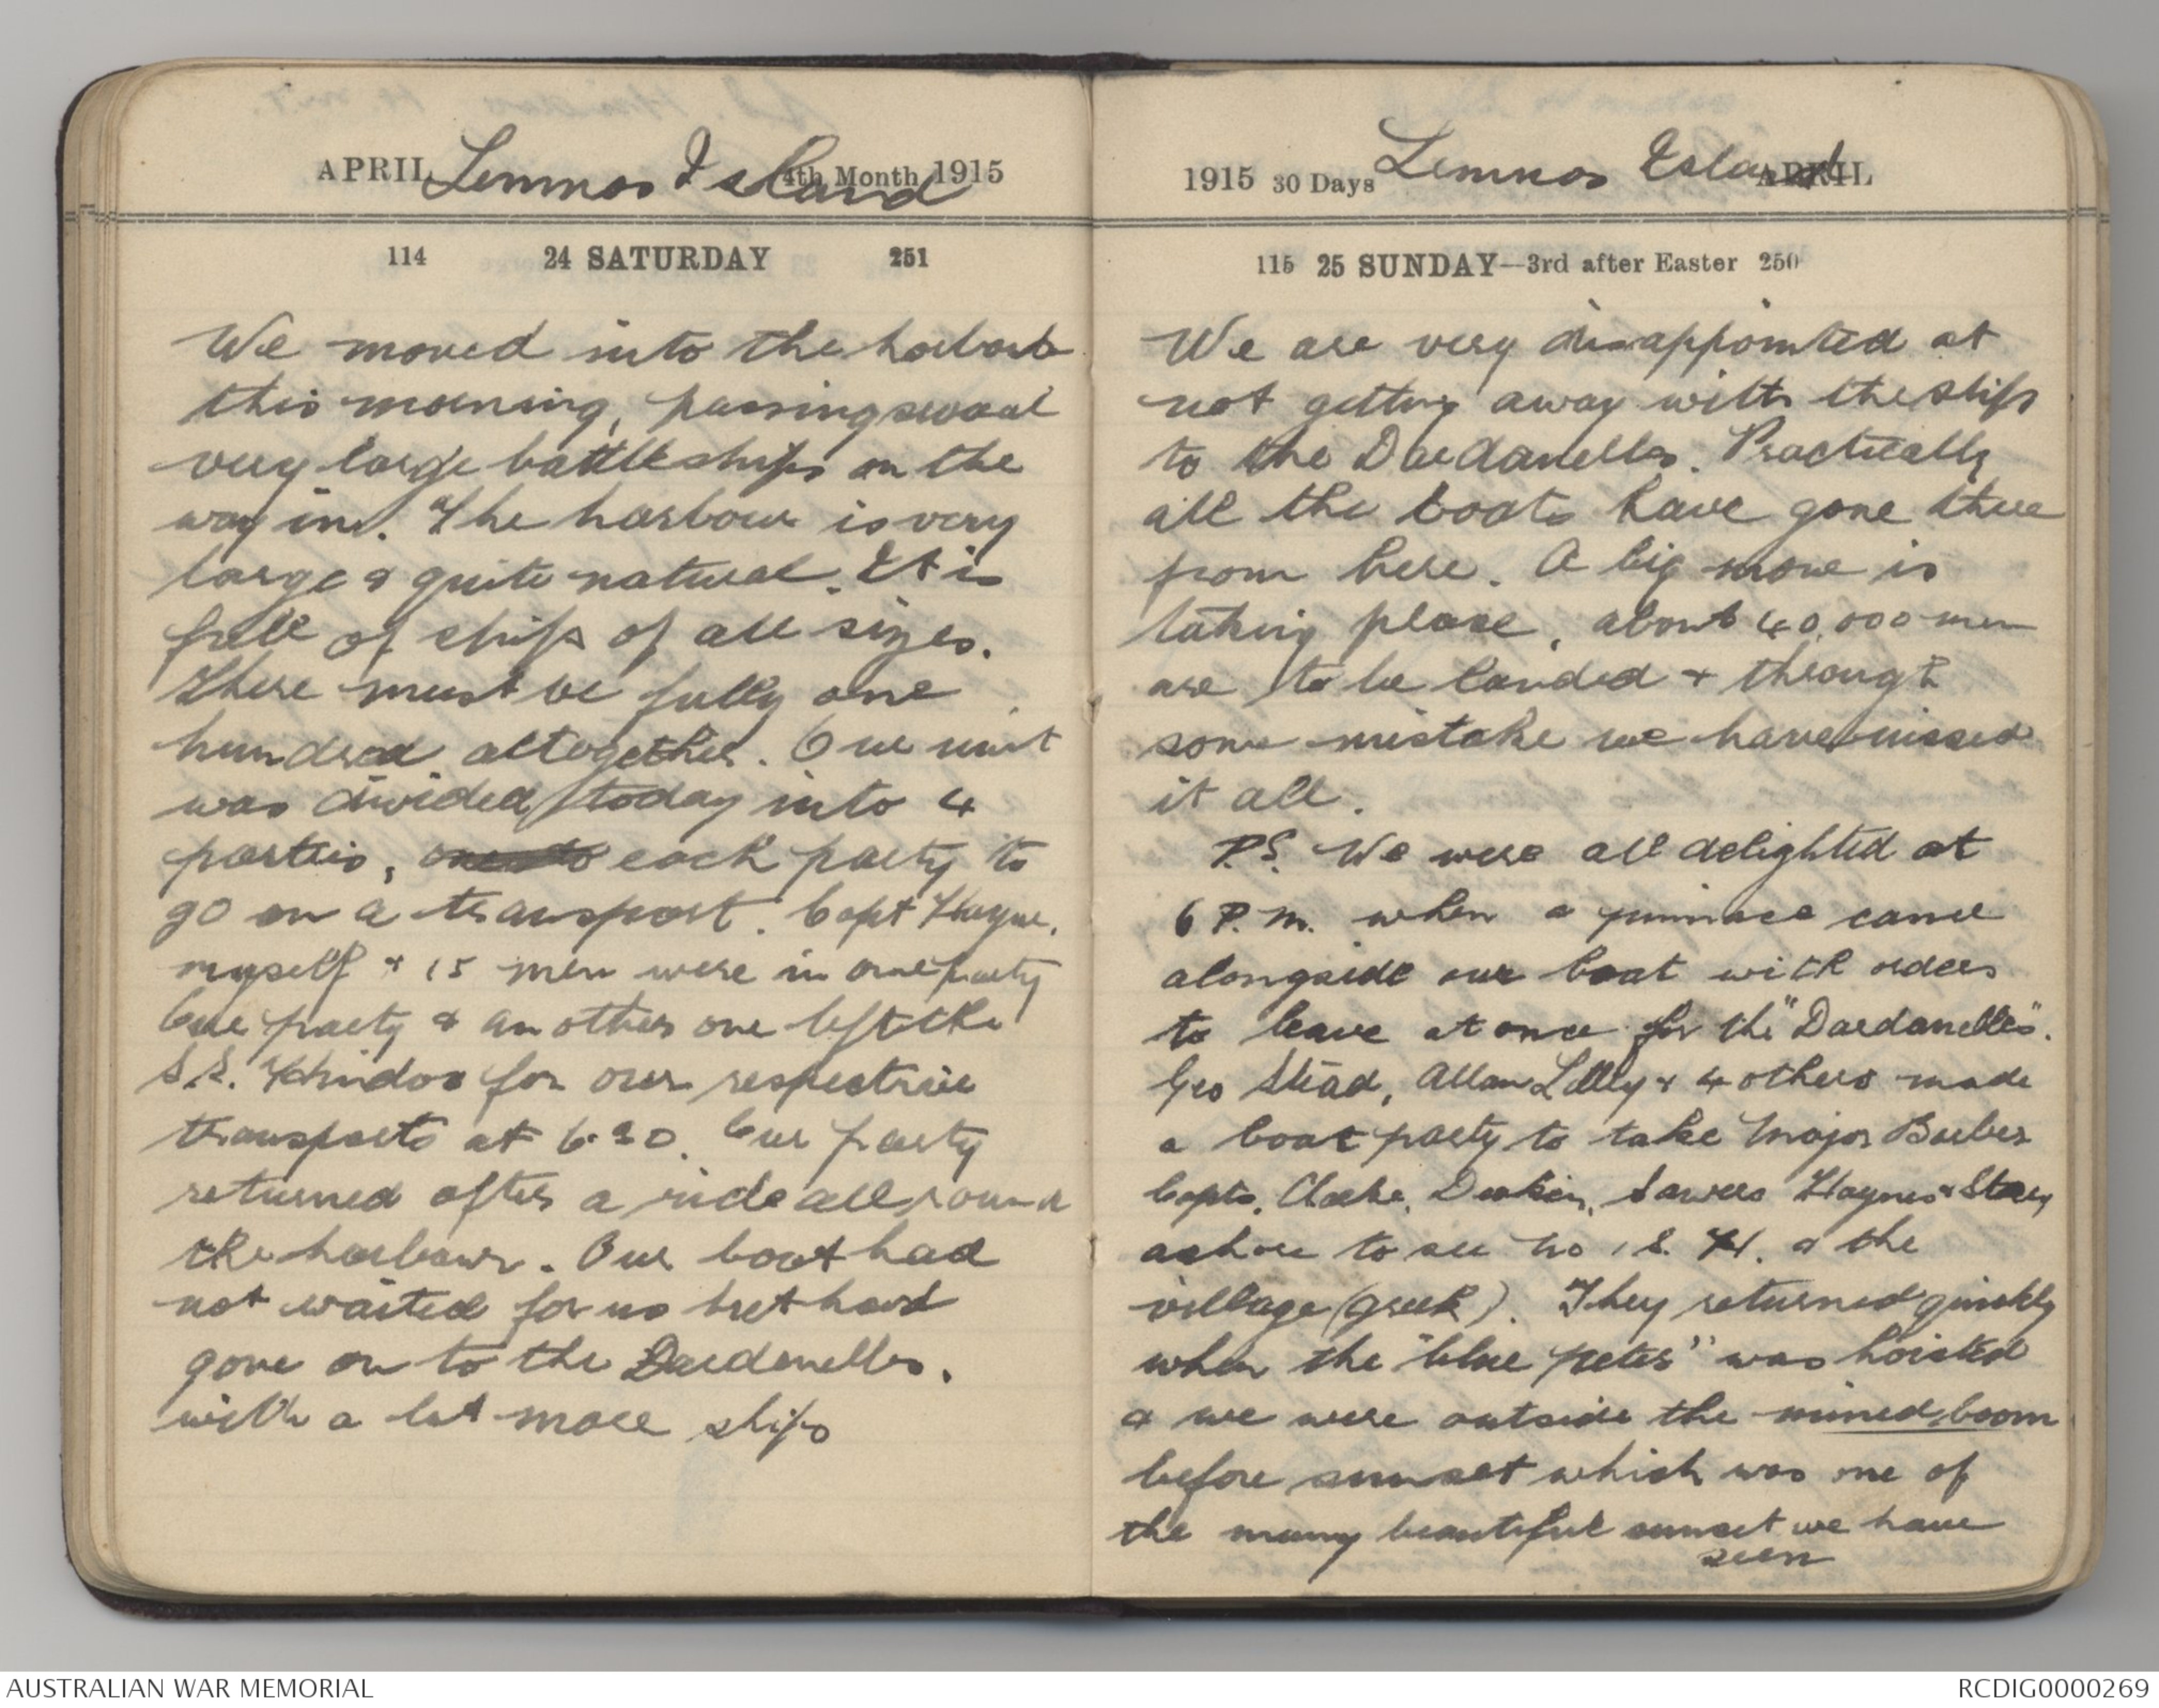 APRIL Lemnos Island 4th Month 1915
114 24 SATURDAY 251
We moved into the harbour
this morning, passing several
very large battleships on the
way in. The harbour is very
large & quite natural. It is
full of ships of all sizes.
There must be fully one
hundred altogether. Our unit
was divided today into 4
parties, each party to
go on a transport. Capt Hayne,
myself & 15 men were in one party
Our party & another one left the
S.S. Hindoo for our respective
transports at 6.30. Our party
returned after a ride all round
the harbour. Our boat had
not waited for us but had
gone on to the Dardenelles.
with a lot more ships
1915 30 Days Lemnos Island APRIL
115 25 SUNDAY—3rd after Easter 250
We are very disappointed at
not getting away with the ships
to the Dardanelles. Practically
all the boats have gone there
from here. A big move is
taking place, about 40,000 men
are to be landed & through
some mistake we have missed
it all.
P.S. We were all delighted at
6 P.M. when a pinnace came
alongside our boat with orders
to leave at once for the "Dardanelles".
Geo Stead, Allan Lilley & 4 others made
a boat party to take Major Barber
Capts. Clarke, Deakin, Sawers Haynes & Storey
ashore to see No 1 S. H. & the
village (greek). They returned quickly
when the "blue peter" was hoisted
& we were outside the mined boom
before sunset which was one of
the many beautiful sunset we have
seen
AUSTRALIAN WAR MEMORIAL
RCDIG0000269